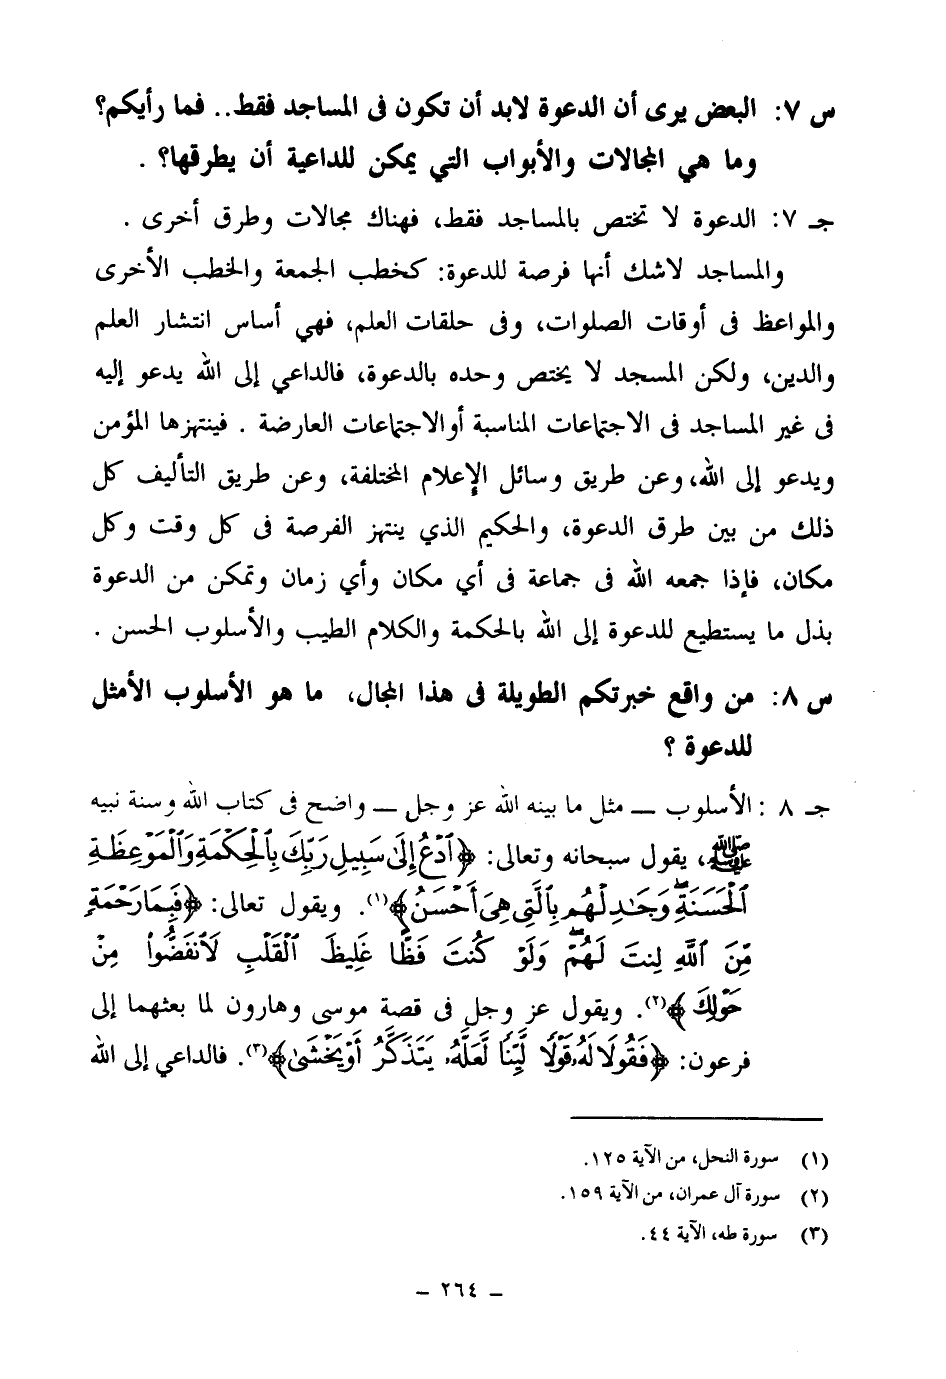 س ٧: البعض يرى أن الدعوة لابد أن تكون فى المساجد فقط.. فما رأيكم؟
وما هي المجالات والأبواب التي يمكن للداعية أن يطرقها؟ .
جـ ٧: الدعوة لا تختص بالمساجد فقط، فهناك مجالات وطرق أخرى .
والمساجد لاشك أنها فرصة للدعوة: كخطب الجمعة والخطب الأخرى
والمواعظ فى أوقات الصلوات، وفى حلقات العلم، فهي أساس انتشار العلم
والدين، ولكن المسجد لا يختص وحده بالدعوة، فالداعي إلى الله يدعو إليه
فى غير المساجد فى الاجتماعات المناسبة أوالاجتماعات العارضة . فينتهزها المؤمن
ويدعو إلى الله، وعن طريق وسائل الإعلام المختلفة، وعن طريق التأليف كل
ذلك من بين طرق الدعوة، والحكيم الذي ينتهز الفرصة فى كل وقت وكل
مكان، فإذا جمعه الله فى جماعة فى أي مكان وأي زمان وتمكن من الدعوة
بذل ما يستطيع للدعوة إلى الله بالحكمة والكلام الطيب والأسلوب الحسن .
س ٨: من واقع خبرتكم الطويلة فى هذا المجال، ما هو الأسلوب الأمثل
للدعوة ؟
جـ ٨ : الأسلوب ــ مثل ما بينه الله عز وجل ــ واضح فى كتاب الله وسنة نبيه
ﷺ، يقول سبحانه وتعالى: ﴿ٱدۡعُ إِلَىٰ سَبِيلِ رَبِّكَ بِٱلۡحِكۡمَةِ وَٱلۡمَوۡعِظَةِ
ٱلۡحَسَنَةِۖ وَجَٰدِلۡهُم بِٱلَّتِي هِيَ أَحۡسَنُ﴾(١). ويقول تعالى: ﴿فَبِمَا رَحۡمَةٖ
مِّنَ ٱللَّهِ لِنتَ لَهُمۡۖ وَلَوۡ كُنتَ فَظًّا غَلِيظَ ٱلۡقَلۡبِ لَٱنفَضُّواْ مِنۡ
حَوۡلِكَ﴾(٢). ويقول عز وجل فى قصة موسى وهارون لما بعثهما إلى
فرعون: ﴿فَقُولَا لَهُۥ قَوۡلٗا لَّيِّنٗا لَّعَلَّهُۥ يَتَذَكَّرُ أَوۡ يَخۡشَىٰ﴾(٣). فالداعي إلى الله
(١) سورة النحل، من الآية ١٢٥.
(٢) سورة آل عمران، من الآية ١٥٩.
(٣) سورة طه، الآية ٤٤.
– ٢٦٤ –